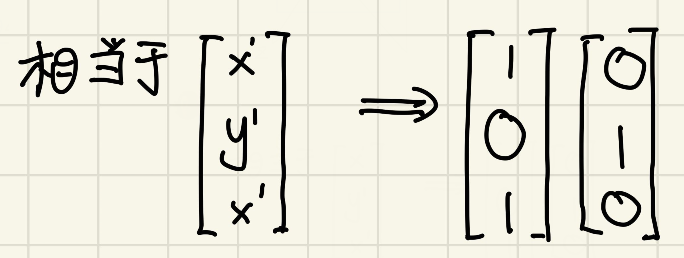 相当于 [x' y' x'] ⇒ [1 0 1] [0 1 0]